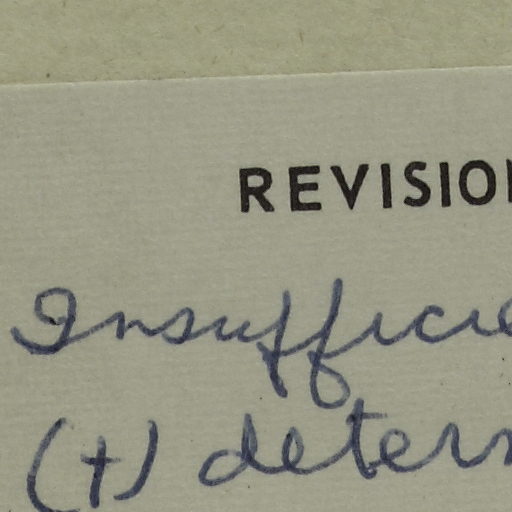 REVISION
Insufficie
(+) determ